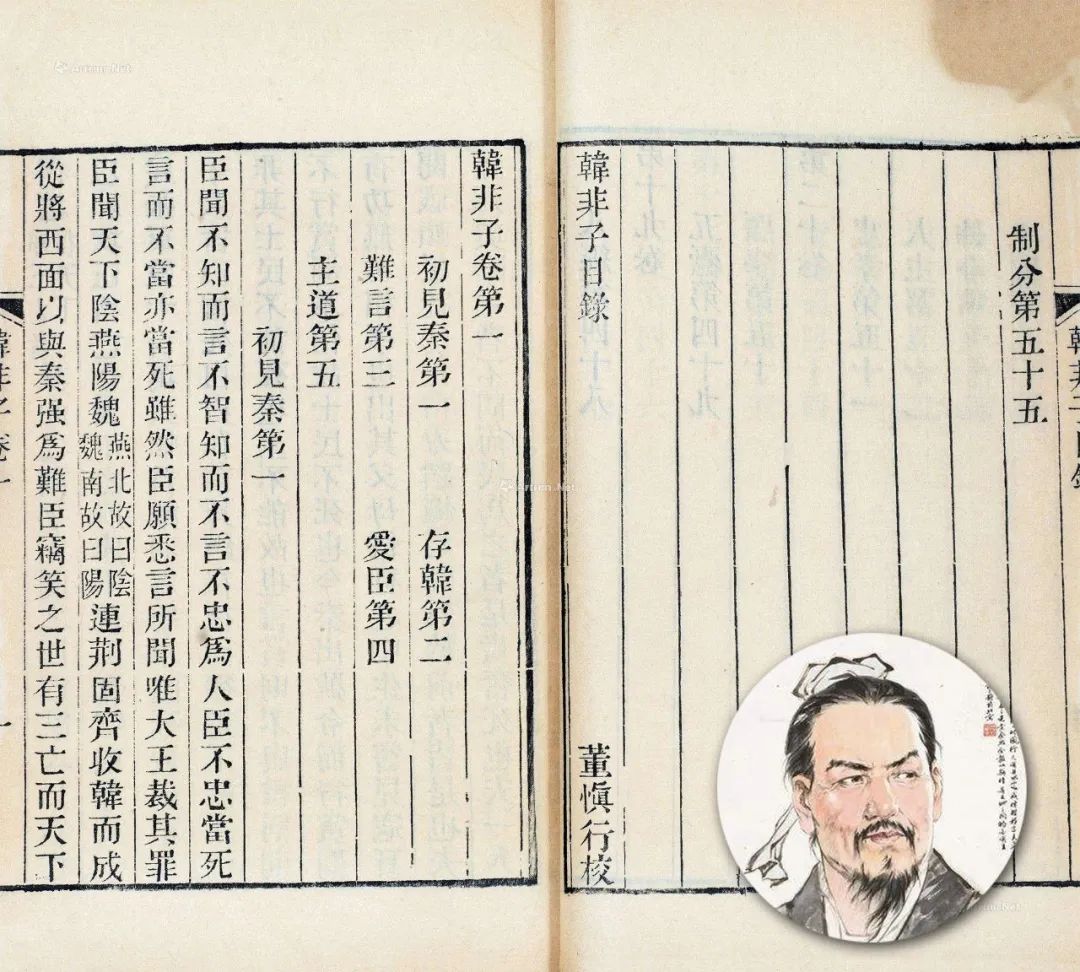 制分第五十五
韓非子目錄
董愼行校
韓非子卷第一
初見秦第一 存韓第二
難言第三 愛臣第四
主道第五
初見秦第一
臣聞不知而言不智知而不言不忠爲人臣不忠當死
言而不當亦當死雖然臣願悉言所聞唯大王裁其罪
臣聞天下陰燕陽魏燕北故曰陰魏南故曰陽連荆固齊收韓而成
從將西面以與秦强爲難臣竊笑之世有三亡而天下
Artron.Net